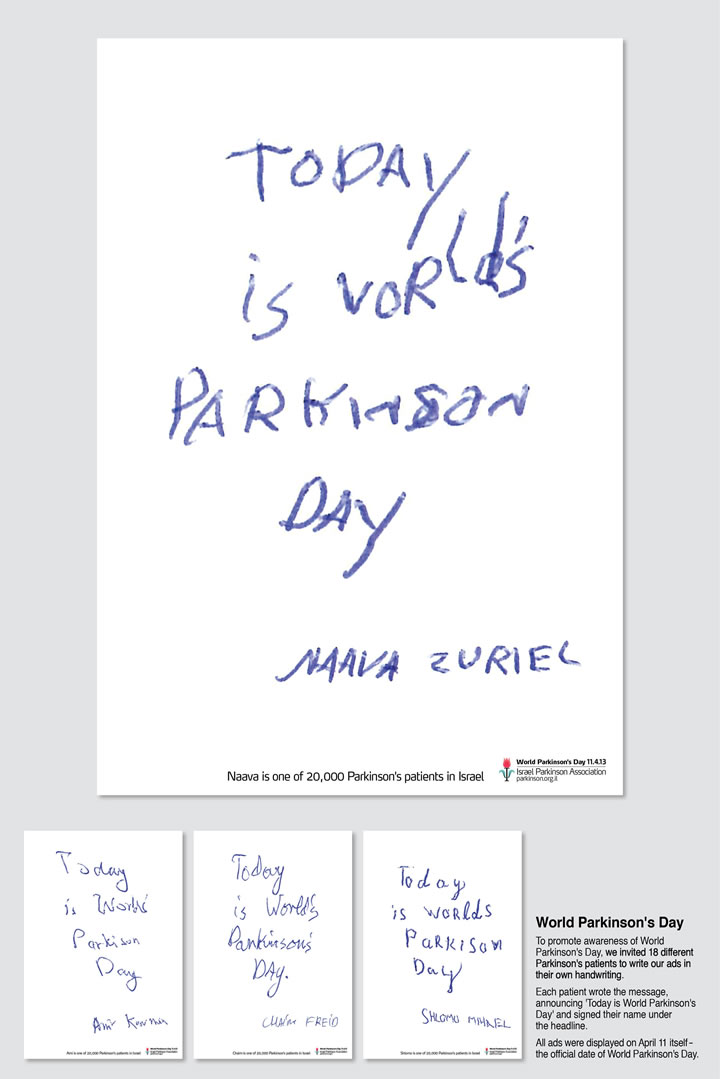 TODAY
is VORld's
PARKINSON
DAY
NAAVA ZURIEL
Naava is one of 20,000 Parkinson's patients in Israel
World Parkinson's Day 11.4.13
Israel Parkinson Association
parkinson.org.il
Today
is World's
Parkison
Day
Amir
Today
is World's
Parkinson's
DAy.
CHAIM FREID
Today
is worlds
PaRKISON
Day
SHLOMO MIHAEL
World Parkinson's Day
To promote awareness of World
Parkinson's Day, we invited 18 different
Parkinson's patients to write our ads in
their own handwriting.
Each patient wrote the message,
announcing 'Today is World Parkinson's
Day' and signed their name under
the headline.
All ads were displayed on April 11 itself-
the official date of World Parkinson's Day.
Amir is one of 20,000 Parkinson's patients in Israel
Chaim is one of 20,000 Parkinson's patients in Israel
Shlomo is one of 20,000 Parkinson's patients in Israel